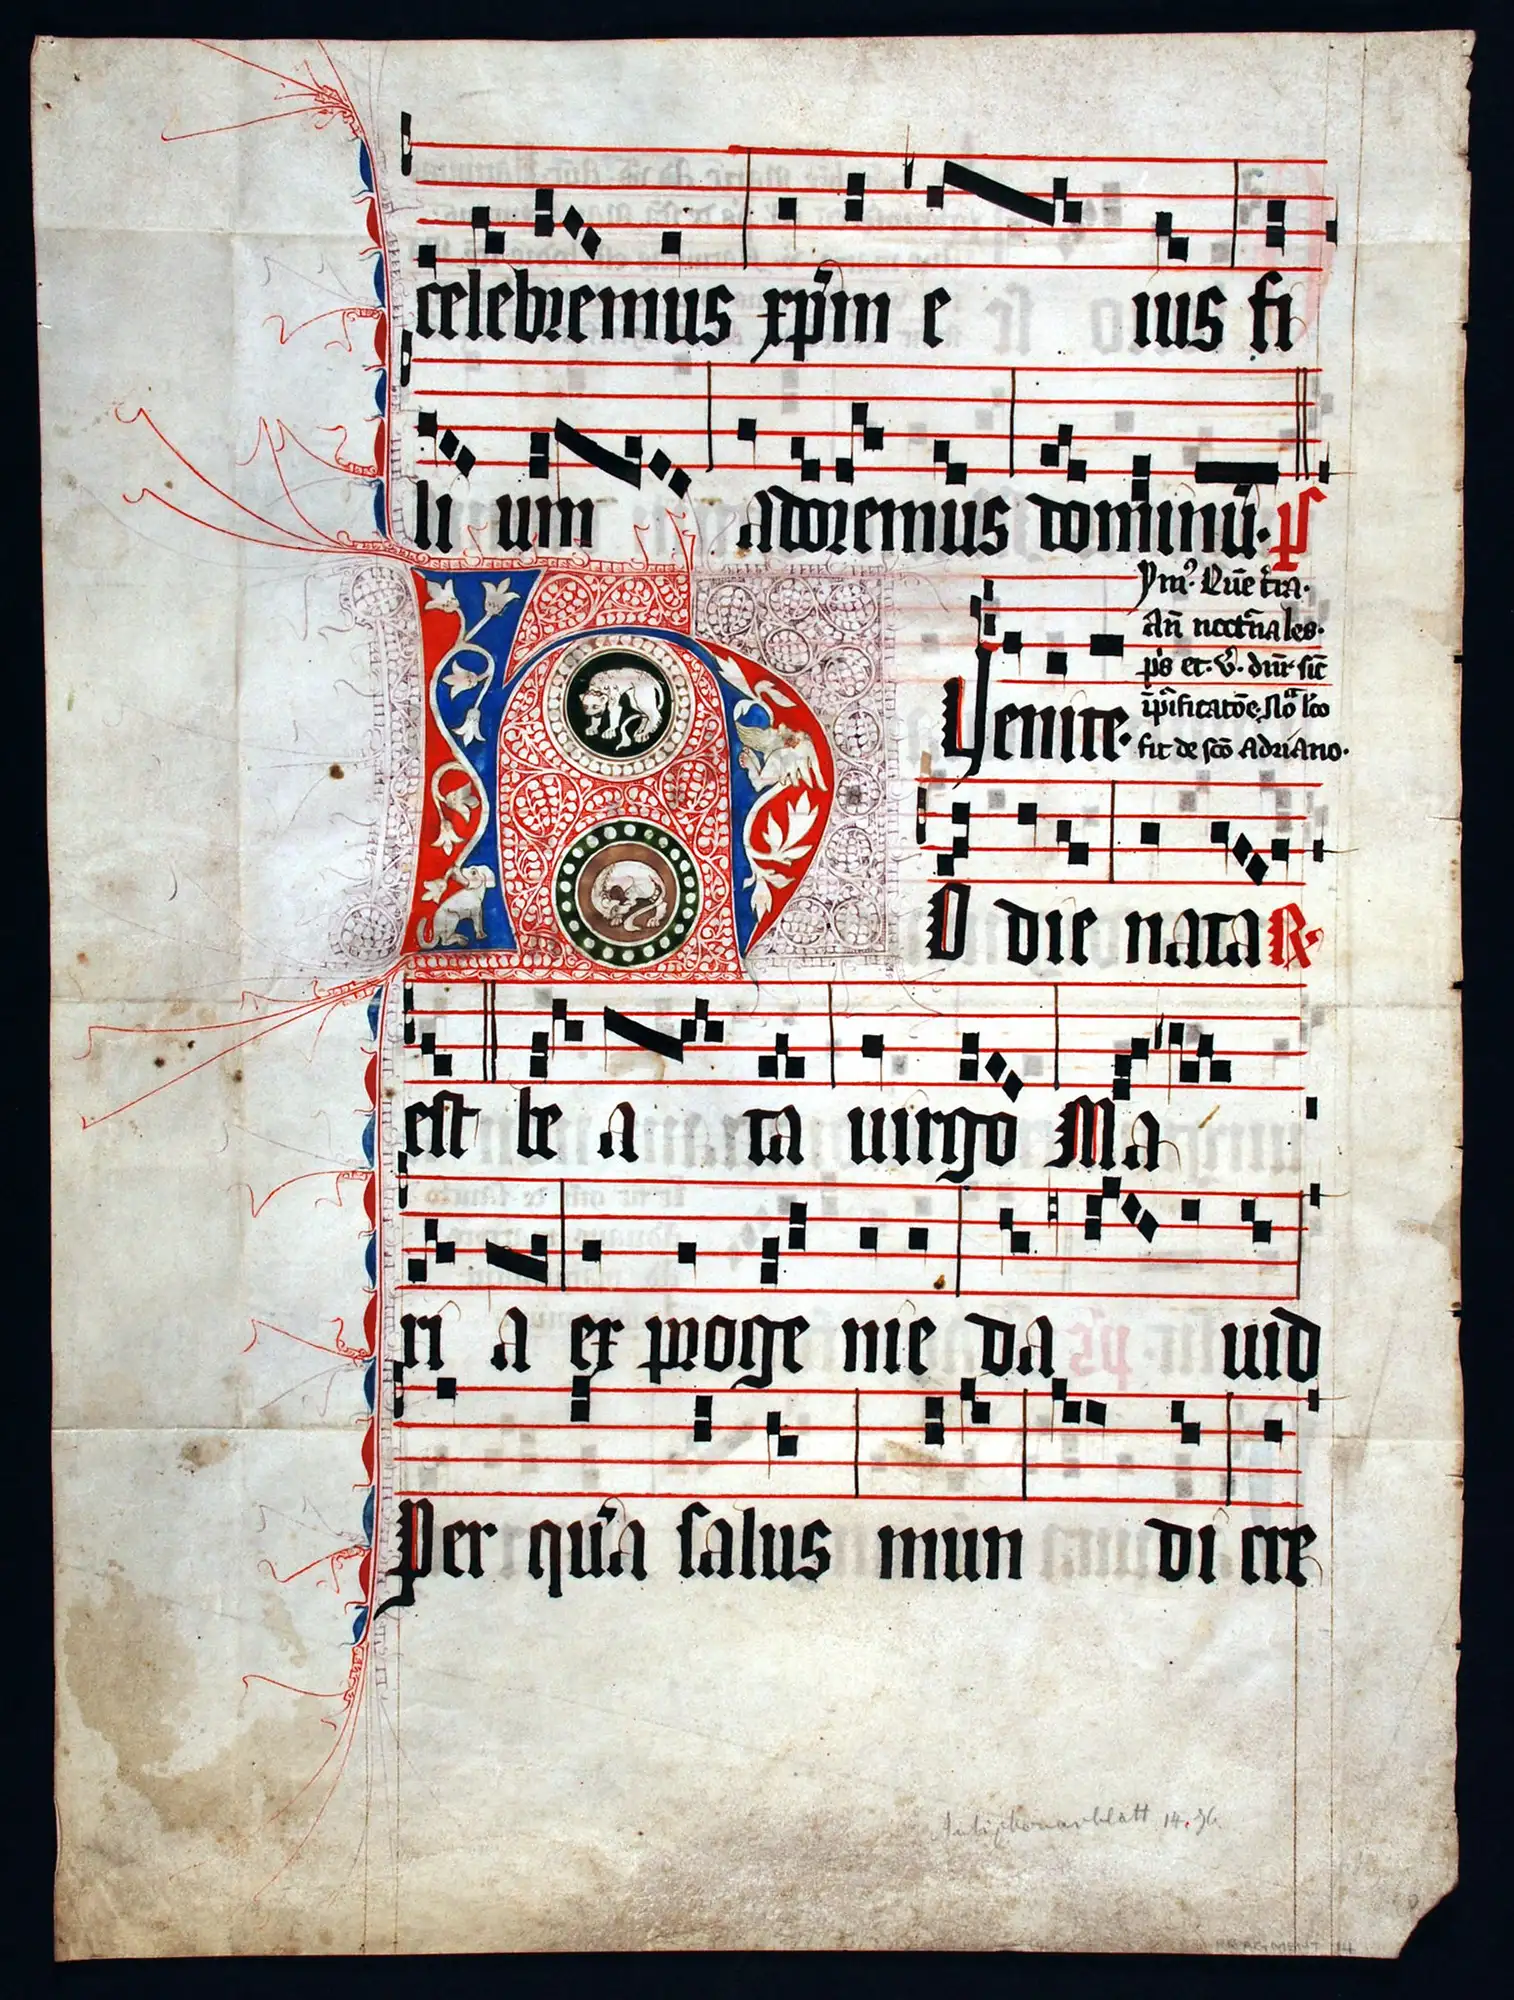 celebremus xp̄m e ius fi
li um adoremus dominū. ps
ym̄. Que t̄ra.
Añ nocturnales.
ps et. V̄. dn̄r sic̄
Venite. ī p̄ificatōe. Nōa l̄co
fit de sc̄o Adriano.
H O die nata R.
est be a ta uirgo Ma
ri a ex proge nie da uid
Per quā salus mun di cre
Antiphonarblatt 14. Jh.
FRAGMENT 14